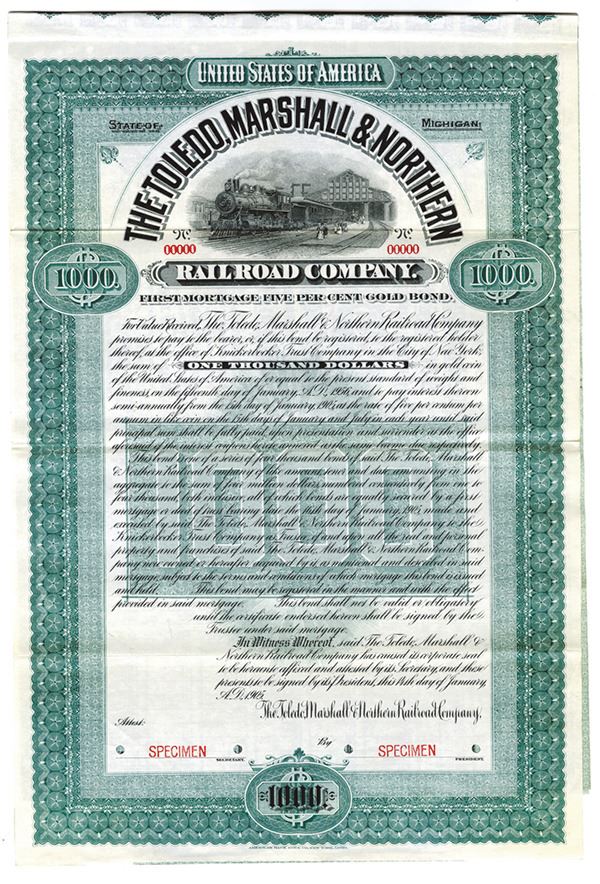 UNITED STATES OF AMERICA
STATE OF MICHIGAN
THE TOLEDO, MARSHALL & NORTHERN
No No
00000 00000
RAILROAD COMPANY.
1000. 1000.
FIRST MORTGAGE FIVE PER CENT GOLD BOND.
For Value Received, The Toledo, Marshall & Northern Railroad Company
promises to pay to the bearer, or, if this bond be registered, to the registered holder
thereof, at the office of Knickerbocker Trust Company in the City of New York,
the sum of ONE THOUSAND DOLLARS in gold coin
of the United States of America of or equal to the present standard of weight and
fineness, on the fifteenth day of January, A.D., 1956, and to pay interest thereon
semi-annually from the 15th day of January, 1905, at the rate of five per centum per
annum in like coin on the 15th day of January and July in each year until said
principal sum shall be fully paid, upon presentation and surrender at the office
aforesaid of the interest coupons hereto annexed as the same become due respectively.
This bond is one of a series of four thousand bonds of said The Toledo, Marshall
& Northern Railroad Company of like amount, tenor and date amounting in the
aggregate to the sum of four million dollars, numbered consecutively from one to
four thousand, both inclusive, all which bonds are equally secured by a first
mortgage or deed of trust bearing date the 14th day of January, 1905, made and
executed by said The Toledo, Marshall & Northern Railroad Company to the
Knickerbocker Trust Company, Trustee, conveying all the real and personal
property and franchises of said The Toledo, Marshall & Northern Railroad Com-
pany now owned or hereafter acquired by it as mentioned and described in said
mortgage, subject to the terms and conditions of which mortgage this bond is issued
and held. This bond may be registered in the manner and with the effect
provided in said mortgage. This bond shall not be valid or obligatory
until the certificate endorsed hereon shall be signed by the
Trustee under said mortgage.
In Witness Whereof, said The Toledo, Marshall &
Northern Railroad Company has caused its corporate seal
to be hereunto affixed and attested by its Secretary, and these
presents to be signed by its President, this 14th day of January,
A.D., 1905.
The Toledo, Marshall & Northern Railroad Company,
1000
Attest:
By
SPECIMEN SPECIMEN
SECRETARY. PRESIDENT.
1000.
AMERICAN BANK NOTE CO. NEW YORK.